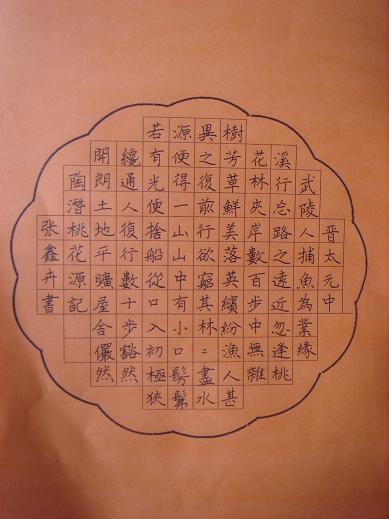 晋太元中
武陵人捕魚為業緣
溪行忘路之遠近忽逢桃
花林夾岸數百步中無雜
樹芳草鮮美落英繽紛漁人甚
異之復前行欲窮其林〻盡水
源便得一山山中有小口髣髴
若有光便捨船從口入初極狹
纔通人復行數十步豁然
開朗土地平曠屋舍儼然
陶潛桃花源記
张鑫卉書